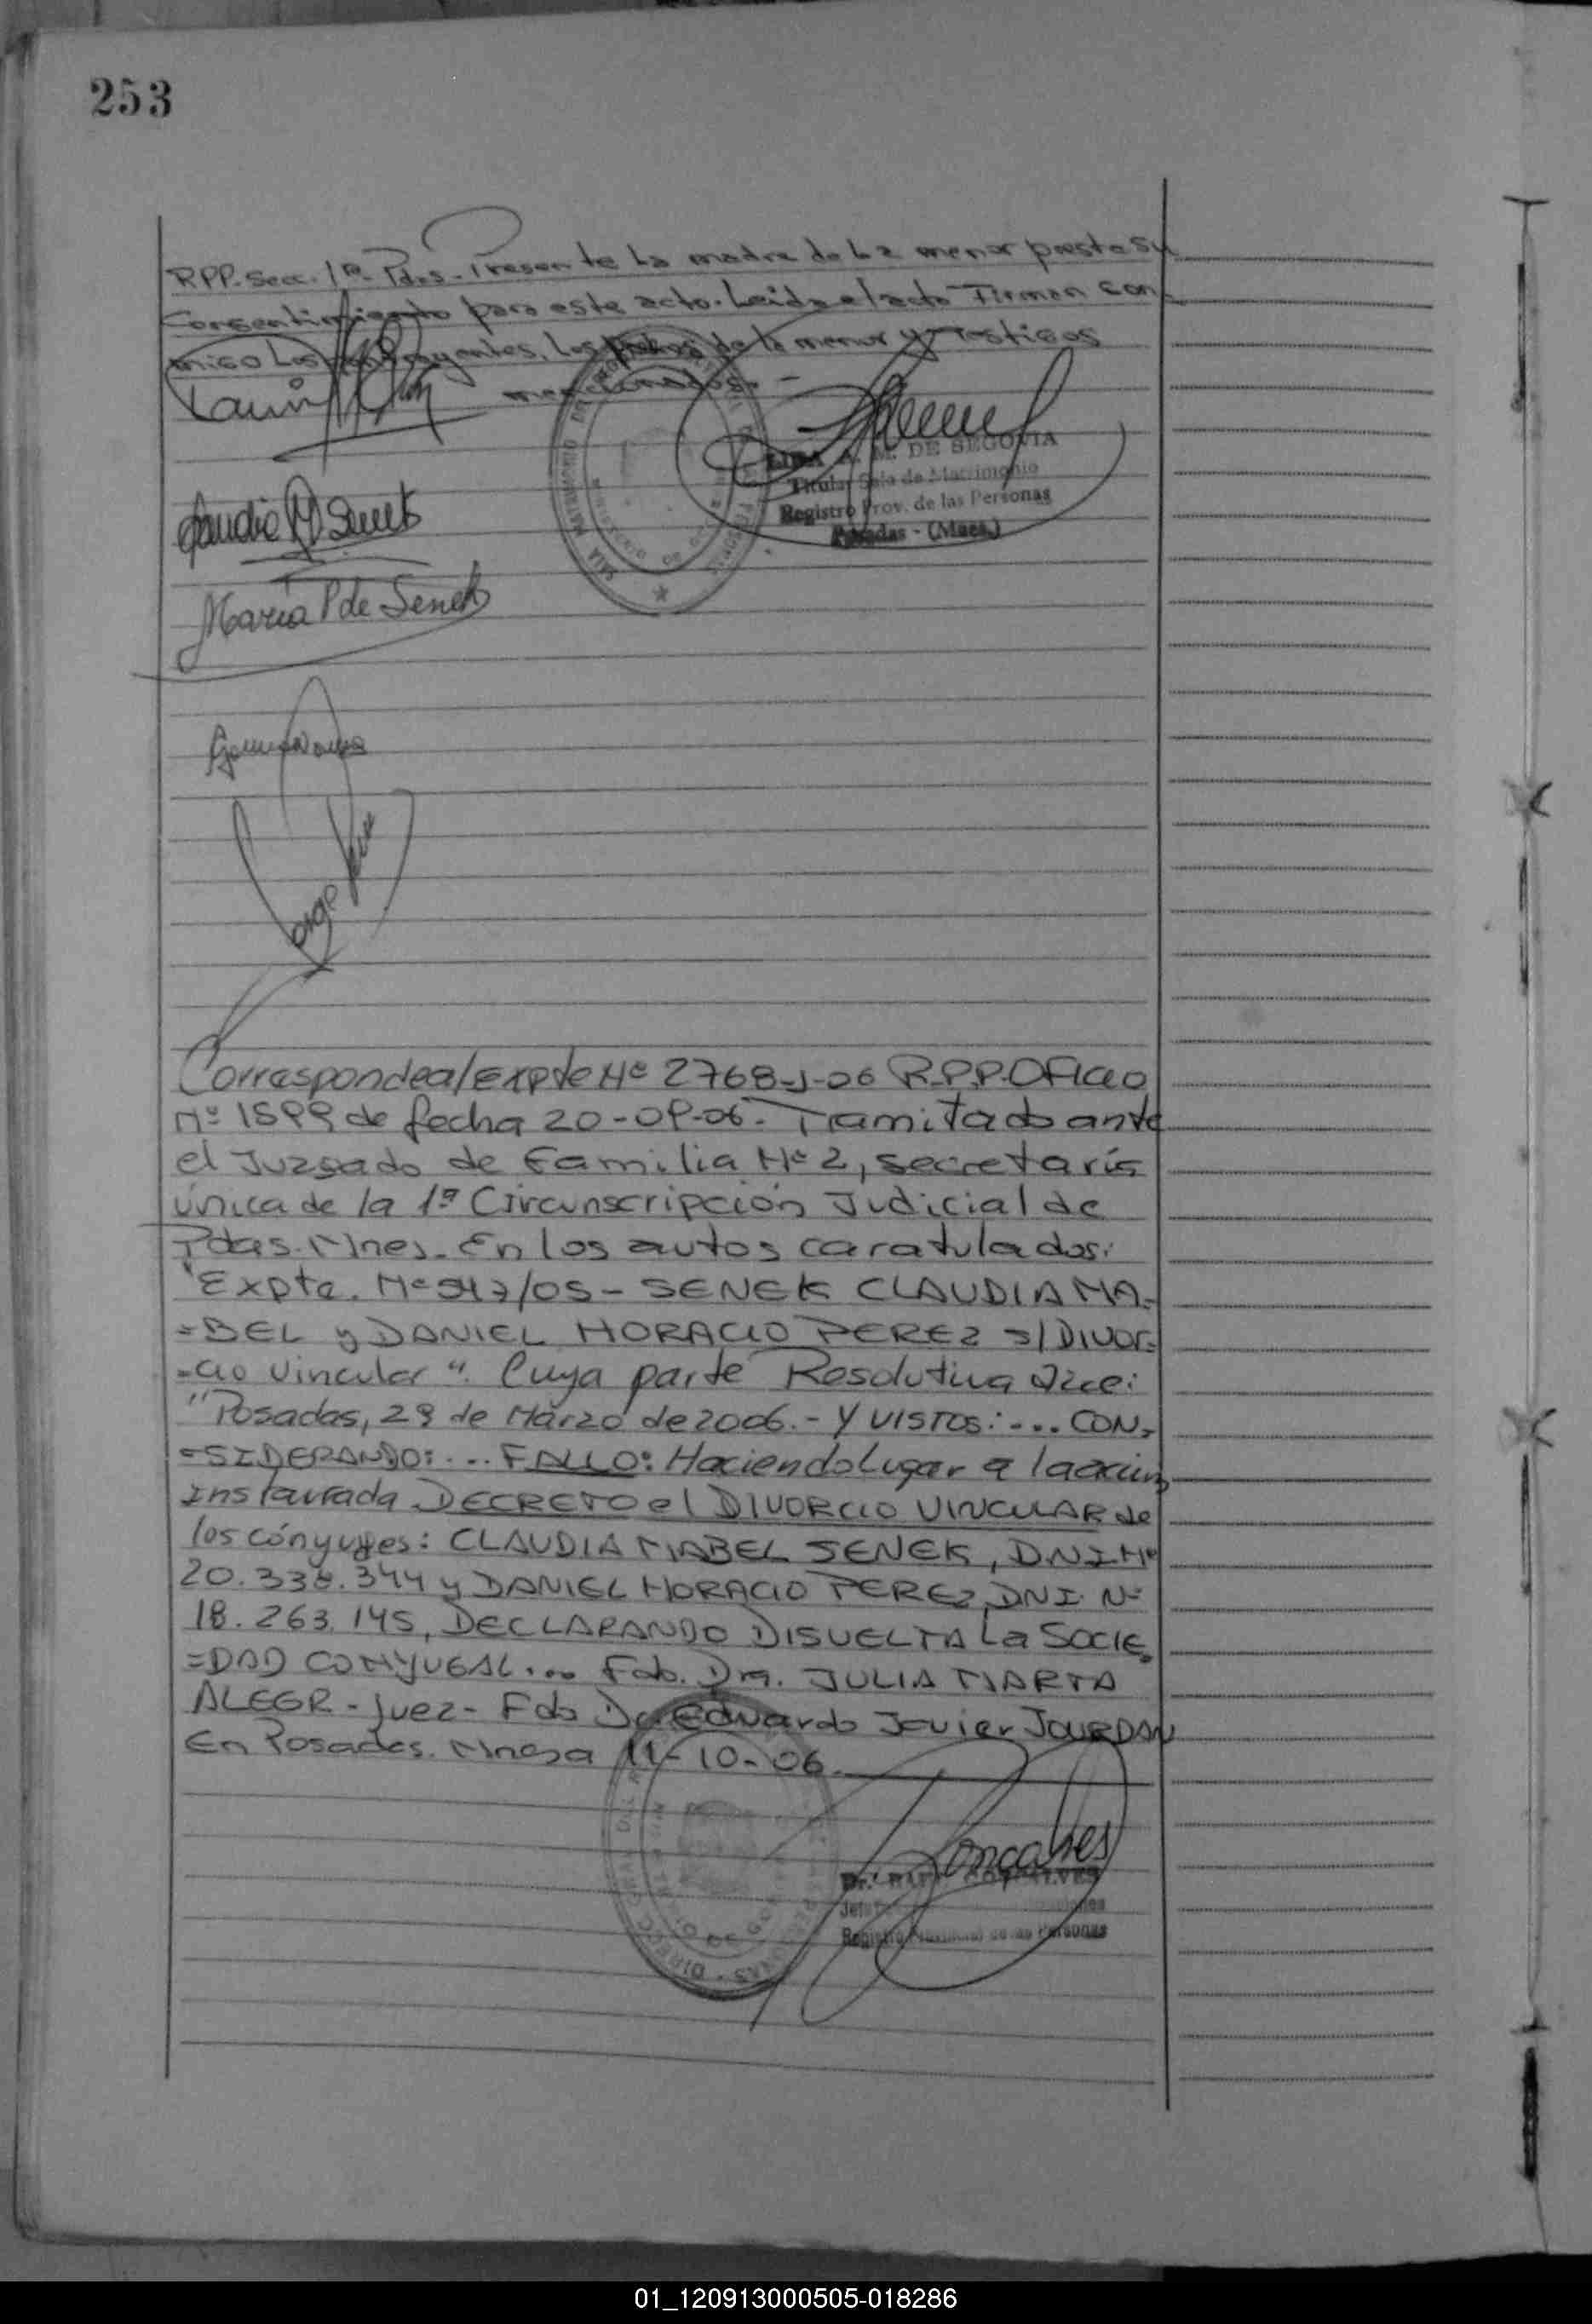 253
RPP. Secc. 1ª. Pdas. Presente la madre de la menor presta su
consentimiento para este acto. Leida el acta Firman con-
migo Los contrayentes, los padres de la menor y testigos
mencionados. -
Claudia M Senek
DE SEGOVIA
Titular Sala de Matrimonio
Registro Prov. de las Personas
Posadas - (Mnes.)
Maria P de Senek
Jorge
Corresponde al Expte Nº 2768-J-06 R.P.P. OFICIO
Nº 1599 de fecha 20-09-06. Tramitado ante
el Juzgado de Familia Nº 2, secretaría
única de la 1ª Circunscripción Judicial de
Pdas. Mnes. En los autos caratulados:
"Expte. Nº 947/05 - SENEK CLAUDIA MA=
=BEL y DANIEL HORACIO PEREZ s/ DIVOR=
=cio Vincular". Cuya parte Resolutiva dice:
"Posadas, 29 de Marzo de 2006.- Y VISTOS:... CON=
=SIDERANDO:... FALLO: Haciendo Lugar a la acción
Instaurada DECRETO el DIVORCIO VINCULAR de
los cónyuges: CLAUDIA MABEL SENEK, DNI Nº
20.338.344 y DANIEL HORACIO PEREZ, DNI. Nº
18.263.145, DECLARANDO DISUELTA La SOCIE=
=DAD CONYUGAL... Fdo. Dra. JULIA MARTA
ALEGR - Juez - Fdo Dr. Eduardo Javier JOURDAN
En Posadas. Mnes a 11-10-06.
Goncalves
GONCALVES
Registro Provincial de las Personas
01_120913000505-018286